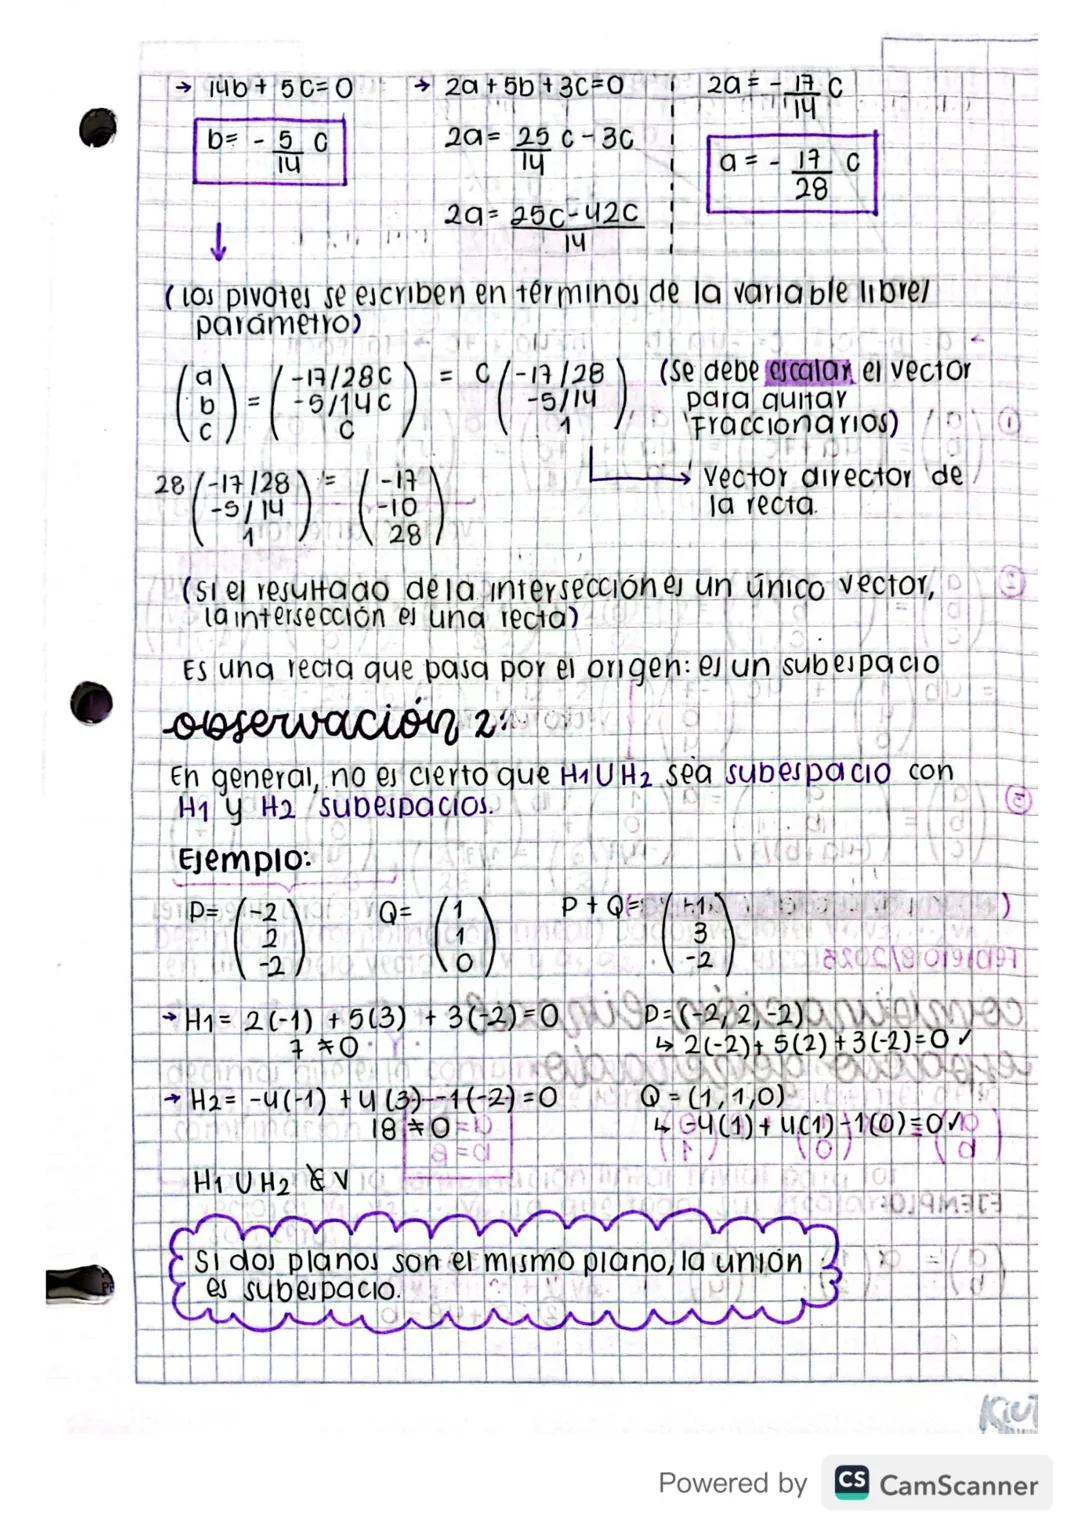 → 14b + 5c = 0
b = - 5/14 c
→ 2a + 5b + 3c = 0
2a = 25/14 c - 3c
2a = 25c - 42c / 14
2a = - 17/14 c
a = - 17/28 c
(los pivotes se escriben en términos de la variable libre/
parámetro)
(a b c) = (-17/28c -5/14c c) = c (-17/28 -5/14 1)
(se debe escalar el vector
para quitar
fraccionarios)
28 (-17/28 -5/14 1) = (-17 -10 28)
Vector director de
la recta.
(si el resultado de la intersección es un único vector,
la intersección es una recta)
Es una recta que pasa por el origen: es un subespacio
observación 2:
En general, no es cierto que H1 U H2 sea subespacio con
H1 y H2 subespacios.
Ejemplo:
P = (-2 2 -2) Q = (1 1 0) P + Q = (-1 3 -2)
→ H1 = 2(-1) + 5(3) + 3(-2) = 0
7 ≠ 0
P = (-2, 2, -2)
↳ 2(-2) + 5(2) + 3(-2) = 0 ✓
→ H2 = -4(-1) + 4(3) - 1(-2) = 0
18 ≠ 0
Q = (1, 1, 0)
↳ -4(1) + 4(1) - 1(0) = 0 ✓
H1 U H2 ∉ V
Si dos planos son el mismo plano, la unión
es subespacio.
Powered by CS CamScanner